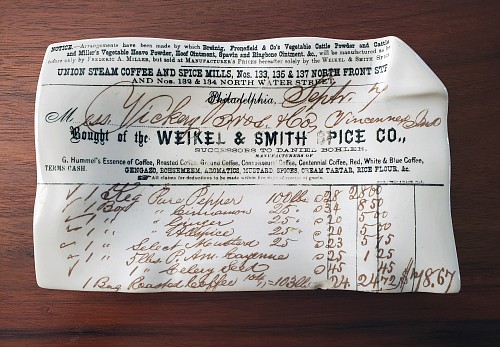 NOTICE.—Arrangements have been made by which Breinig, Fronefield & Co's Vegetable Cattle Powder and Cattle
and Miller's Vegetable Heave Powder, Hoof Ointment, Spavin and Ringbone Ointment, &c., will be manufactured as
before only by Frederic A. Miller, but sold at Manufacturer's Prices hereafter solely by the Weikel & Smith Spice
UNION STEAM COFFEE AND SPICE MILLS, Nos. 133, 135 & 137 NORTH FRONT STR
AND Nos. 132 & 134 NORTH WATER STREET
Philadelphia, Septr. 19
M ess. Vickery Bros. & Co Vincennes Ind
Bought of the WEIKEL & SMITH SPICE CO.,
SUCCESSORS TO DANIEL BOHLEN,
MANUFACTURERS OF
G. Hummel's Essence of Coffee, Roasted Coffee, Ground Coffee, Connoisseurs Coffee, Centennial Coffee, Red, White & Blue Coffee,
TERMS CASH. GENGAZO, BOHSEMEEM, AROMATICS, MUSTARD SPICES, CREAM TARTAR, RICE FLOUR, &c.
All claims for deductions to be made within five days of receipt of goods.
1 Keg Pure Pepper 100 lbs @ 28 28.00
1 Box " Cinnamon 25 " @ 34 8 50
1 " " Ginger 25 " @ 20 5 00
1 " " Allspice 25 " @ 20 5 00
1 " Select Mustard 25 @ 23 5 75
1 " 5 lbs P. Am. Cayenne @ 25 1 25
1 " " Celery Seed @ 45 45
1 Bag Roasted Coffee 103 lbs 24 24 72 $78.67